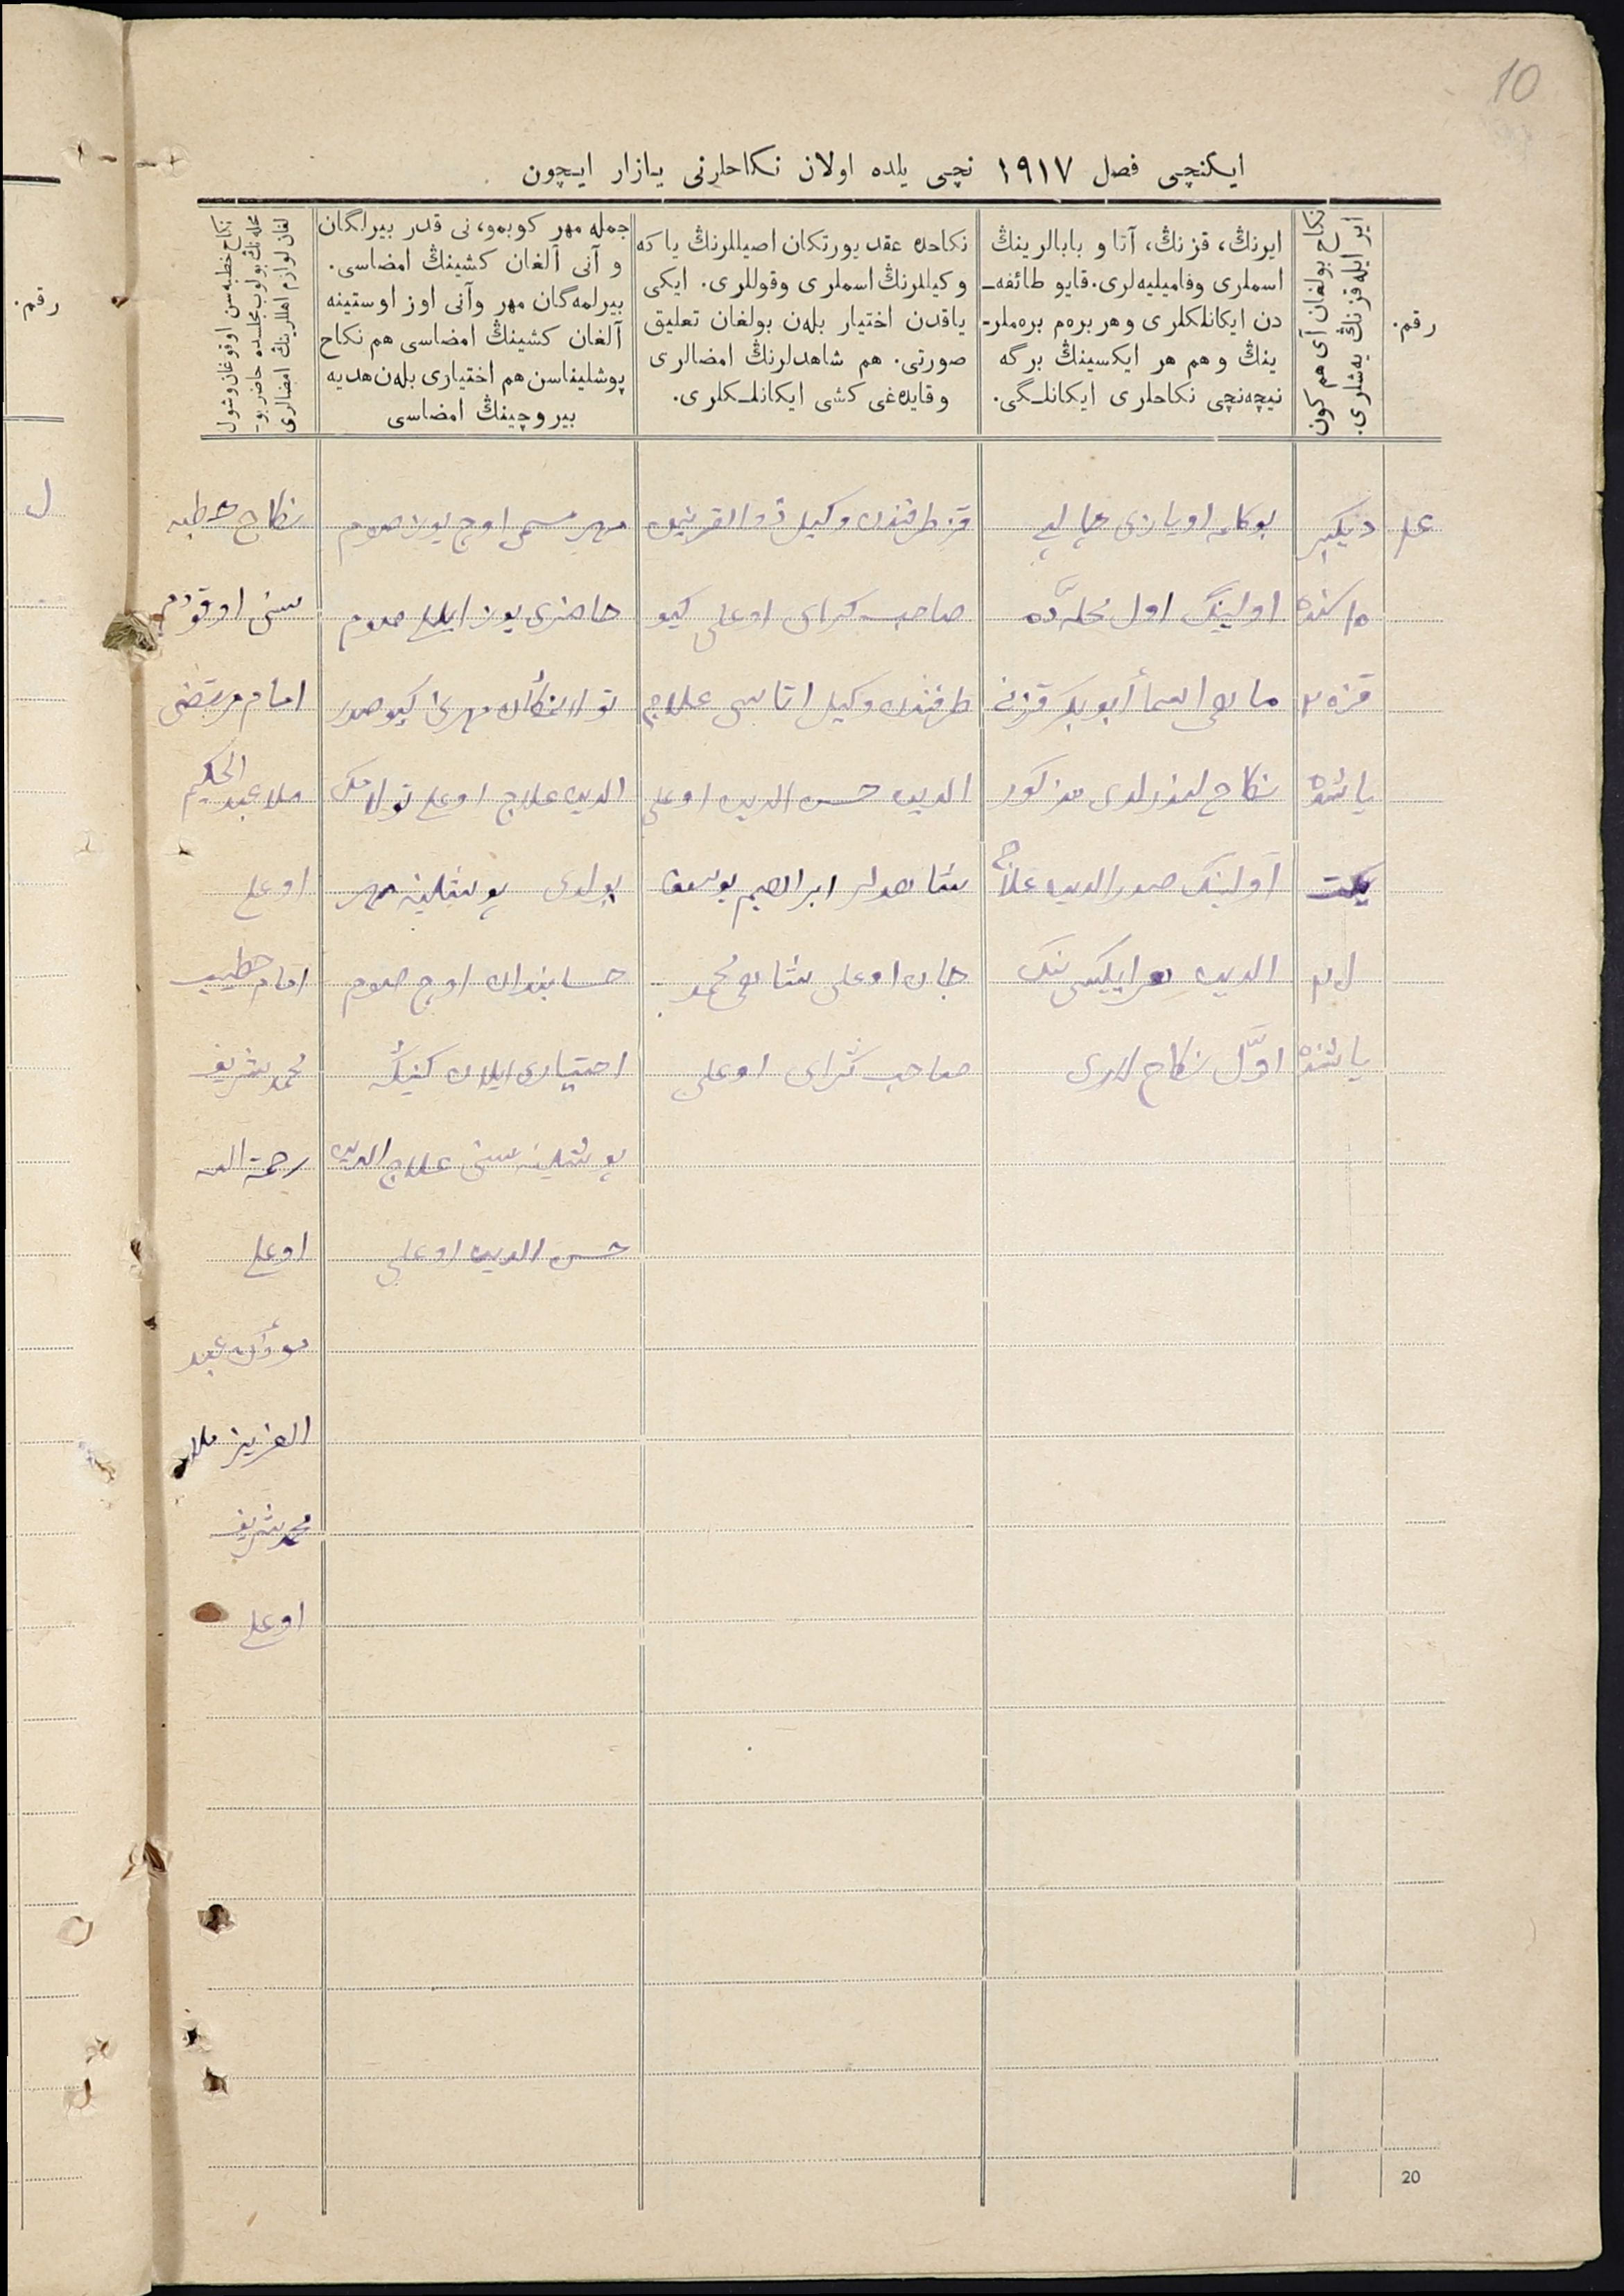 10
ایکنچی فصل ۱۹۱۷ نچی یلده اولان نکاحلرنی یازار ایچون
رقم.
نکاح بولغان آی هم کون
ایر ایله قزنڭ یەشلری.
ایرنڭ، قزنڭ، آتا و بابالرینڭ
اسملری وفامیلیەلری. قایو طائفەـ
دن ایکانلکلری وهر برەم برەملرـ
ینڭ وهم هر ایکسینڭ برگه
نیچەنچی نکاحلری ایکانلـگی.
نکاحدە عقد یورتکان اصیللرنڭ یا کە
وکیللرنڭ اسملری وقوللری. ایکی
یاقدن اختیار بلەن بولغان تعلیق
صورتی. هم شاهدلرنڭ امضالری
وقایدەغی کشی ایکانلـکلری.
جمله مهر کوبمو، نی قدر بیرلگان
و آنی آلغان کشینڭ امضاسی.
بیرلمەگان مهر وآنی اوز اوستینه
آلغان کشینڭ امضاسی هم نکاح
پوشلیناسن هم اختیاری بلەن هدیه
بیروچینڭ امضاسی
نکاح خطبەسن اوقوغان وشول
محلەنڭ بولوب مجلسده حاضر بوـ
لغان لوازم اهللرینڭ امضالری
دیکبر
۱۵ سنده
قزه ۲
یاشنده
یکت
یاشنده
بوکامه اویازی
اولینک اول محلّه ده
ابوبکر قزنه
نکاح لندرلدی مذکور
اولینک صدرالدین علاج
الدین هر ایکیسی ننک
اوّل نکاح لاری
قز طرفندن وکیل ذوالقرنین
صاحب کرای اوغلی کیو
طرفندن وکیل اتاسی علاج
الدین حسن الدین اوغلی
شاهدلر ابراهیم یوسف
جان اوغلی شاهی محمد
صاحب کرای اوغلی
مهر مسمی اوج یوز صوم
حاضری یوز ایللی صوم
تولانمکان مهرن کیو صدر
الدین علاج اوغلی تولامک
بولدی پوشلینه مهر
حسابندان اوج صوم
اختیاری ایلان
پوشلینه سنی علاج الدین
حسن الدین اوغلی
نکاح خطبه
سنی اوقودم
امام مرتضی
ملا عبد الحکیم
اوغلی
امام خطیب
محمد شریف
رحمة الله
اوغلی
مؤذن عبد
العزیز ملا
محمد شریف
اوغلی
20
رقم.